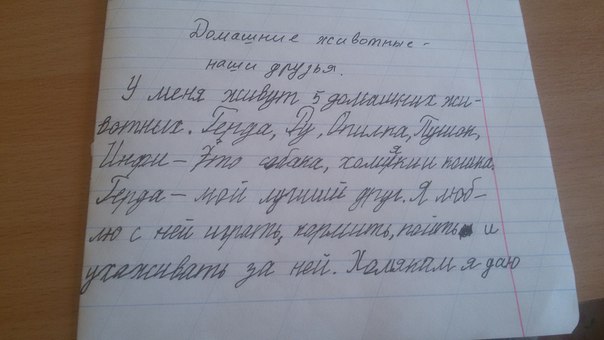 Домашние животные -
наши друзья.
У меня живут 5 домашних жи-
вотных. Герда, Ру, Опилка, Пушок,
Инфи – Это собака, хомяки и кошка.
Герда – мой лучший друг. Я люб-
лю с ней играть, кормить, поить и
ухаживать за ней. Хомякам я даю